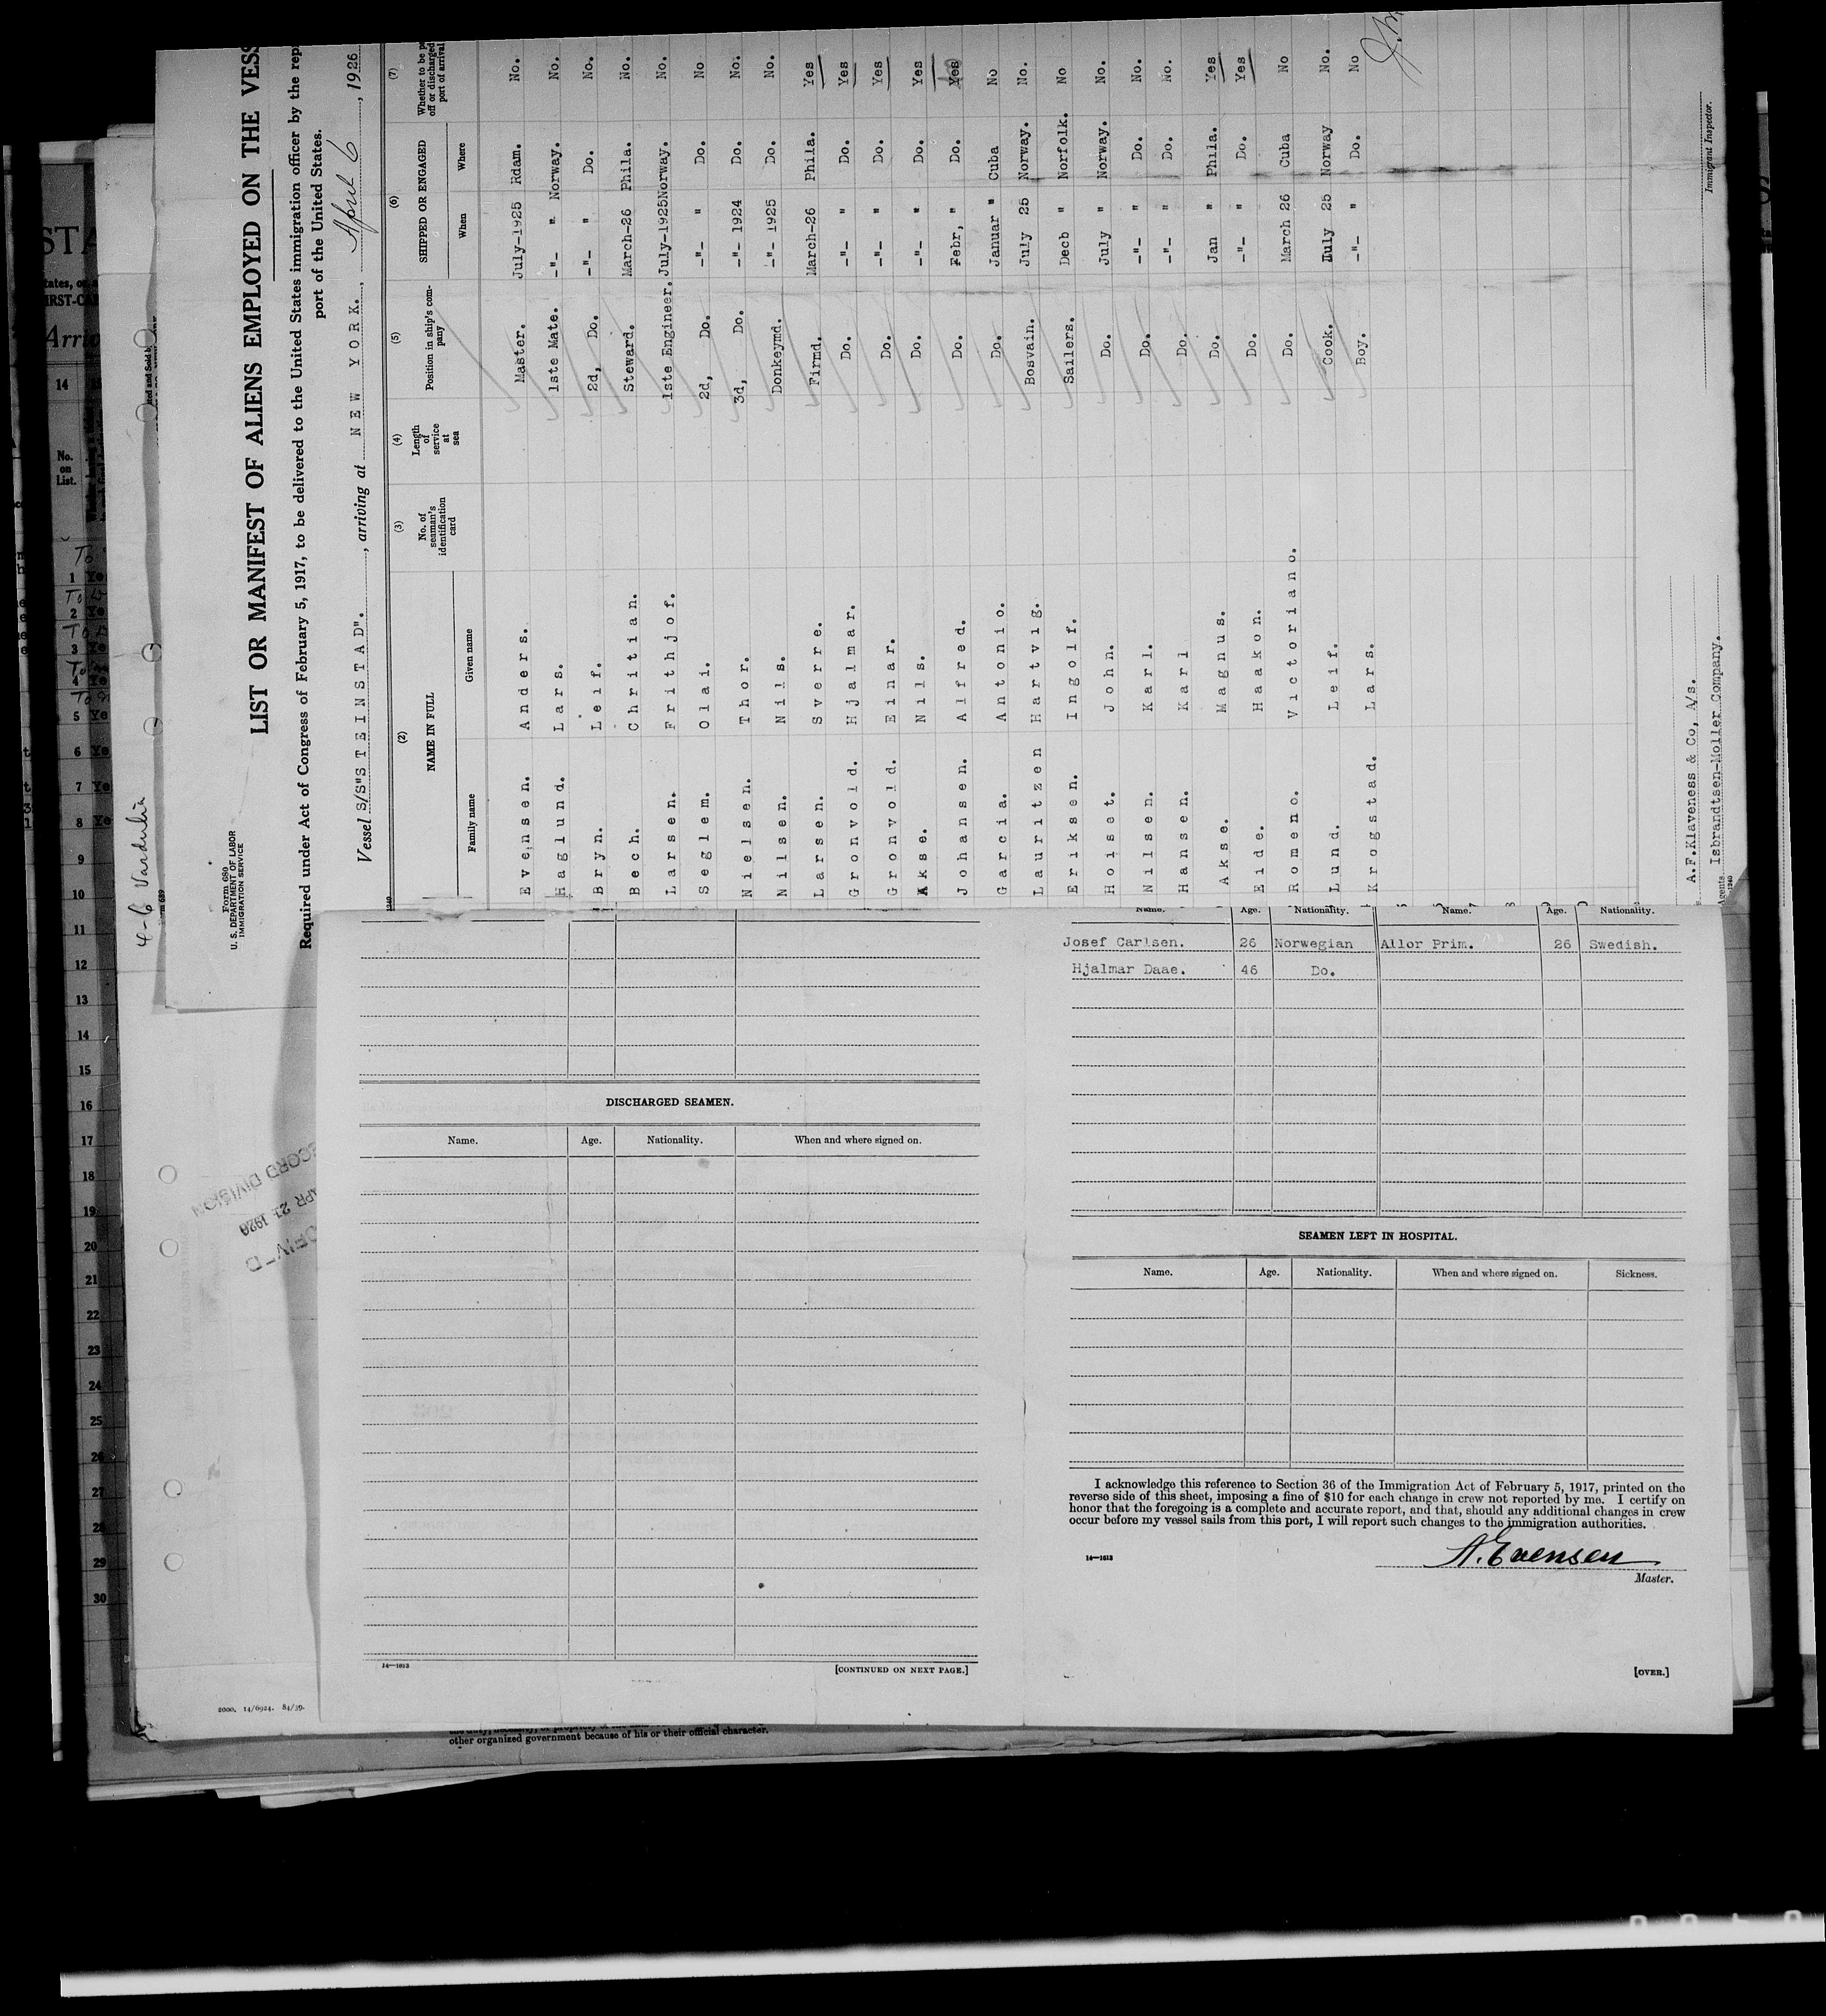 4-6 Vardulia
Form 689
U. S. DEPARTMENT OF LABOR
IMMIGRATION SERVICE
LIST OR MANIFEST OF ALIENS EMPLOYED ON THE VESS
Required under Act of Congress of February 5, 1917, to be delivered to the United States immigration officer by the rep
port of the United States.
Vessel S/S"S T E I N S T A D"., arriving at N E W Y O R K., April 6, 1926
(2) (3) (4) (5) (6) (7)
NAME IN FULL No. of seaman's identification card Length of service at sea Position in ship's company SHIPPED OR ENGAGED Whether to be p off or discharged port of arrival
Family name Given name When Where
Evensen. Anders. Master. July-1925 Rdam. No.
Haglund. Lars. 1ste Mate. -"- " Norway. No.
Bryn. Leif. 2d, Do. -"- " Do. No.
Bech. Chritian. Steward. March-26 Phila. No.
Larsen. Frithjof. 1ste Engineer. July-1925 Norway. No.
Seglem. Olai. 2d, Do. -"- " Do. No
Nielsen. Thor. 3d, Do. -"- 1924 Do. No.
Nilsen. Nils. Donkeymd. -"- 1925 Do. No.
Larsen. Sverre. Firmd. March-26 Phila. Yes
Gronvold. Hjalmar. Do. -"- " Do. Yes
Gronvold. Einar. Do. -"- " Do. Yes
Akse. Nils. Do. -"- " Do. Yes
Johansen. Alfred. Do. Febr, " Do. Yes
Garcia. Antonio. Do. Januar " Cuba No
Lauritzen Hartvig. Bosvain. July 25 Norway. No.
Eriksen. Ingolf. Sailers. Decb " Norfolk. No
Hoiset. John. Do. July " Norway. No.
Nilsen. Karl. Do. -"- " Do. No.
Hansen. Karl Do. -"- " Do. No.
Akse. Magnus. Do. Jan " Phila. Yes
Eide. Haakon. Do. -"- " Do. Yes
Romeno. Victoriano. Do. March 26 Cuba No
Lund. Leif. Cook. July 25 Norway No.
Krogstad. Lars. Boy. -"- " Do. No
A.F.Klaveness & Co, A/s.
Agents Isbrandtsen-Moller Company.
Immigrant Inspector.
Name. Age. Nationality. Name. Age. Nationality.
Josef Carlsen. 26 Norwegian Allor Prim. 26 Swedish.
Hjalmar Daae. 46 Do.
DISCHARGED SEAMEN.
Name. Age. Nationality. When and where signed on.
14—1613
[CONTINUED ON NEXT PAGE.]
SEAMEN LEFT IN HOSPITAL.
Name. Age. Nationality. When and where signed on. Sickness.
I acknowledge this reference to Section 36 of the Immigration Act of February 5, 1917, printed on the
reverse side of this sheet, imposing a fine of $10 for each change in crew not reported by me. I certify on
honor that the foregoing is a complete and accurate report, and that, should any additional changes in crew
occur before my vessel sails from this port, I will report such changes to the immigration authorities.
14—1613
A. Evensen
Master.
[OVER.]
14
No.
on
List.
1 Ye
2 Ye
3 Ye
4 Ye
5 Ye
6 Ye
7 Ye
8 Ye
9
10
11
12
13
14
15
16
17
18
19
20
21
22
23
24
25
26
27
28
29
30
CORD DIVISION
APR 21 1926
2000. 14/6924. 84/39.
other organized government because of his or their official character.